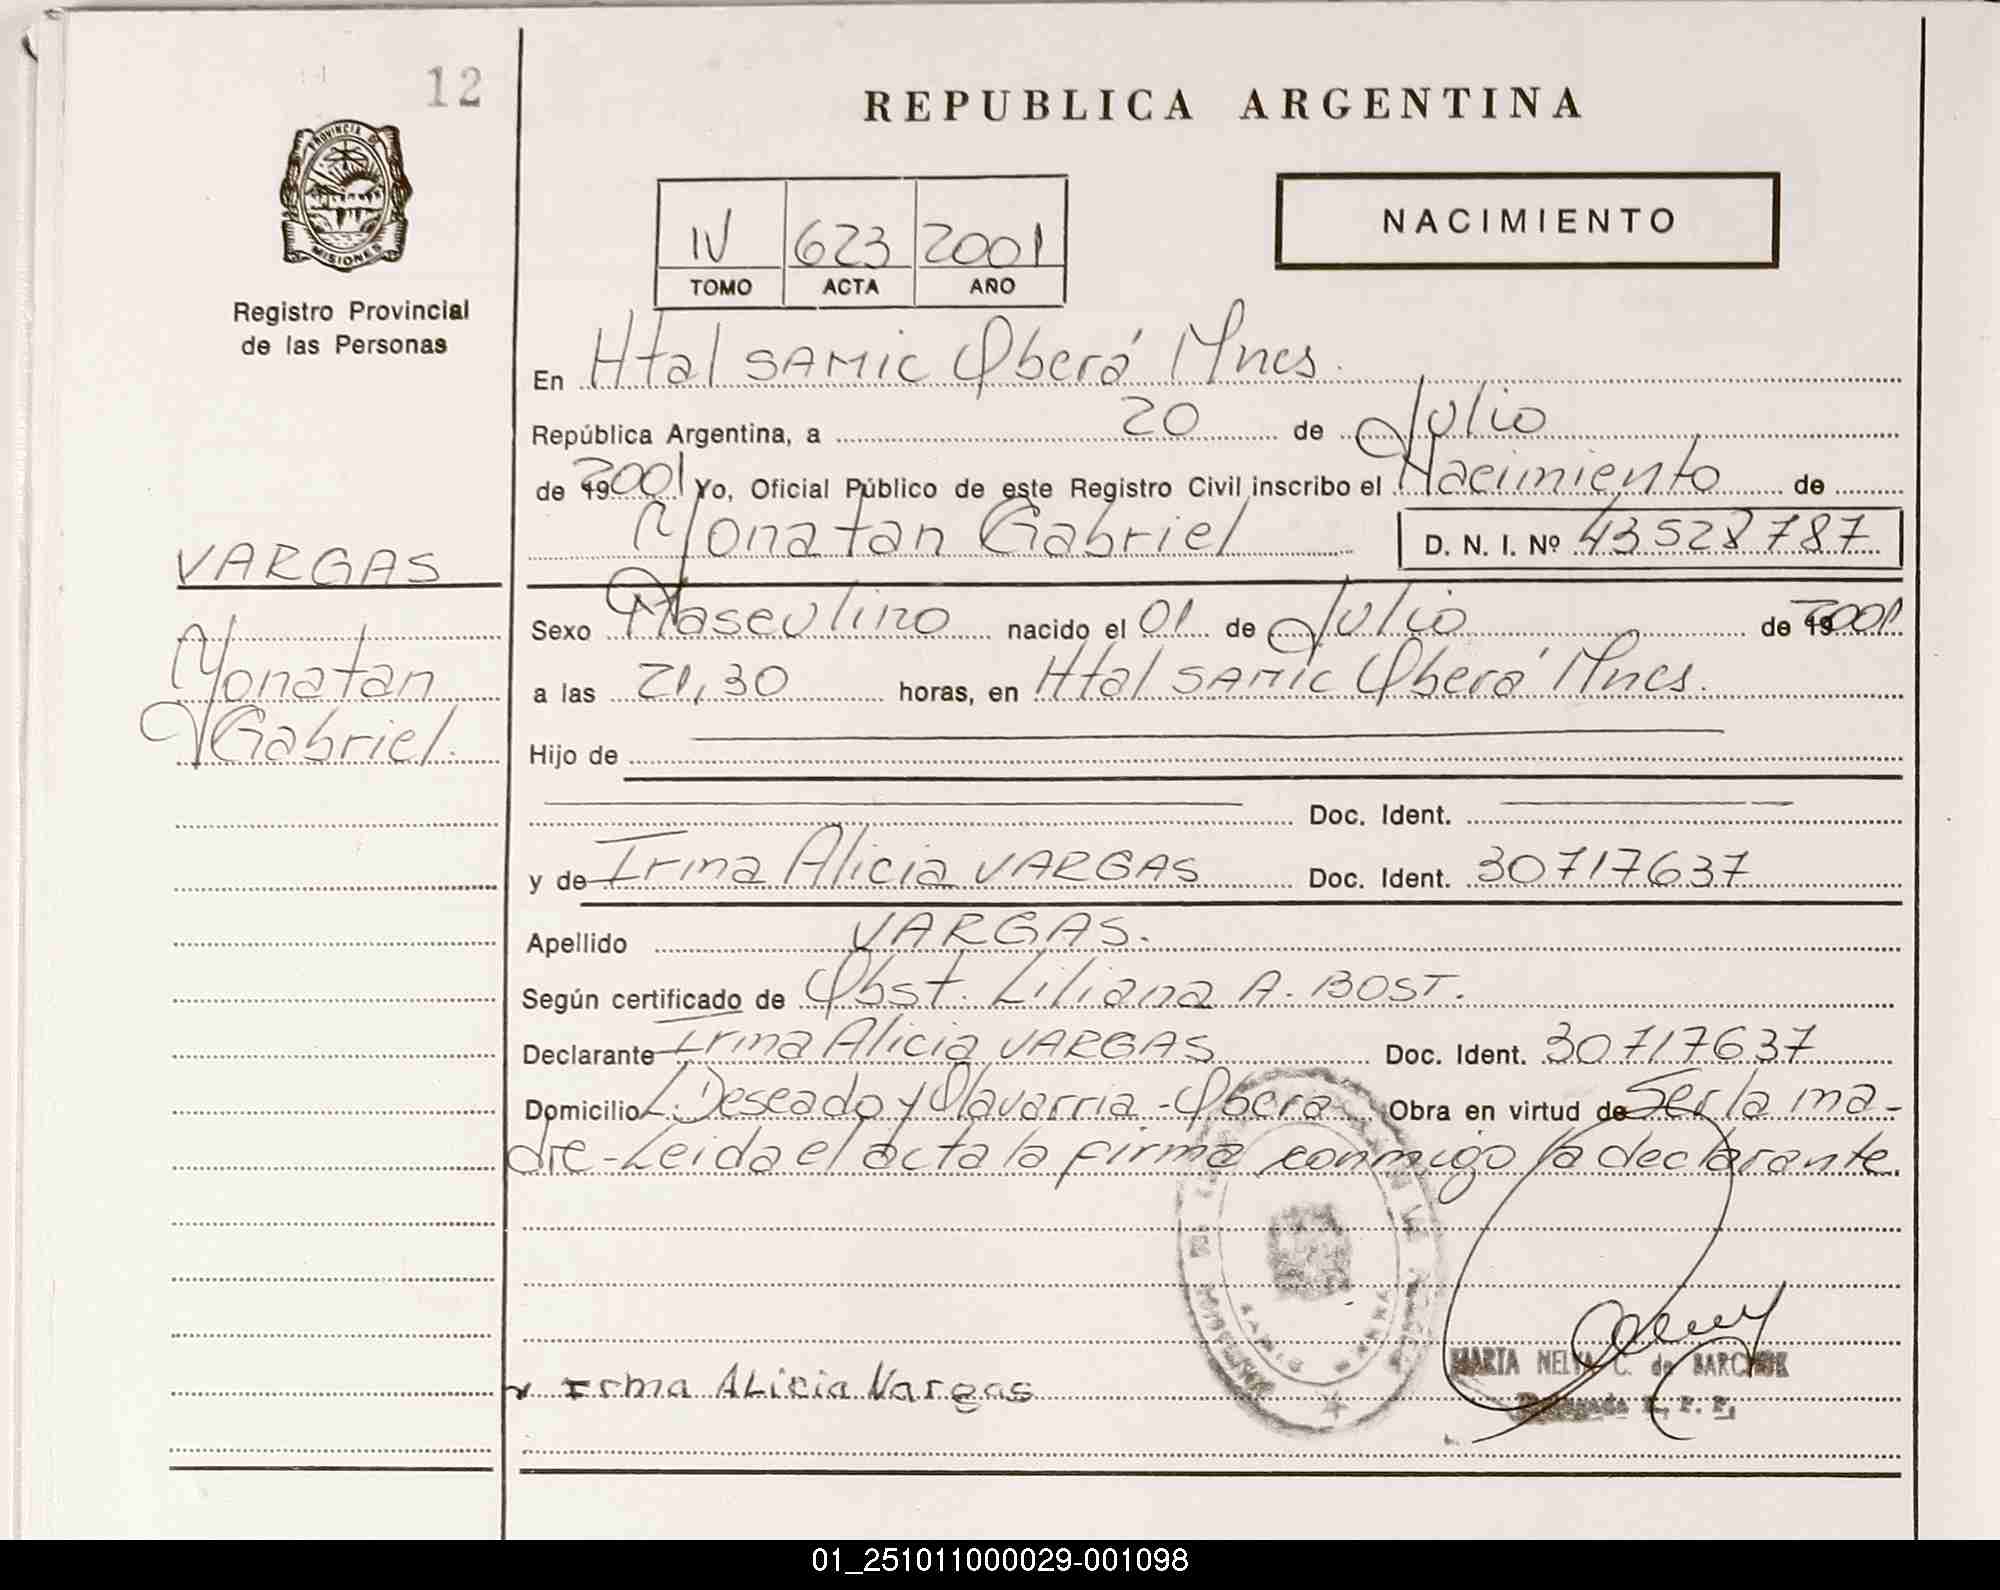 12
PROVINCIA DE
MISIONES
Registro Provincial
de las Personas
VARGAS
Yonatan
Gabriel.
REPUBLICA ARGENTINA
IV 623 2001
TOMO ACTA AÑO
NACIMIENTO
En Htal SAMIC Oberá Mnes.
República Argentina, a 20 de Julio
de 192001 Yo, Oficial Público de este Registro Civil inscribo el Nacimiento de
Yonatan Gabriel D. N. I. Nº 43528787
Sexo Masculino nacido el 01 de Julio de 192001
a las 21,30 horas, en Htal SAMIC Oberá Mnes.
Hijo de
Doc. Ident.
y de Irma Alicia VARGAS Doc. Ident. 30717637
Apellido VARGAS.
Según certificado de Obst. Liliana A. BOST.
Declarante Irma Alicia VARGAS Doc. Ident. 30717637
Domicilio L. Deseado y Olavarria - Oberá Obra en virtud de Ser la ma-
dre - Leida el acta la firma conmigo la declarante.
Irma ALicia Vargas
MARTA NELVA C. de BARCHUK
01_251011000029-001098